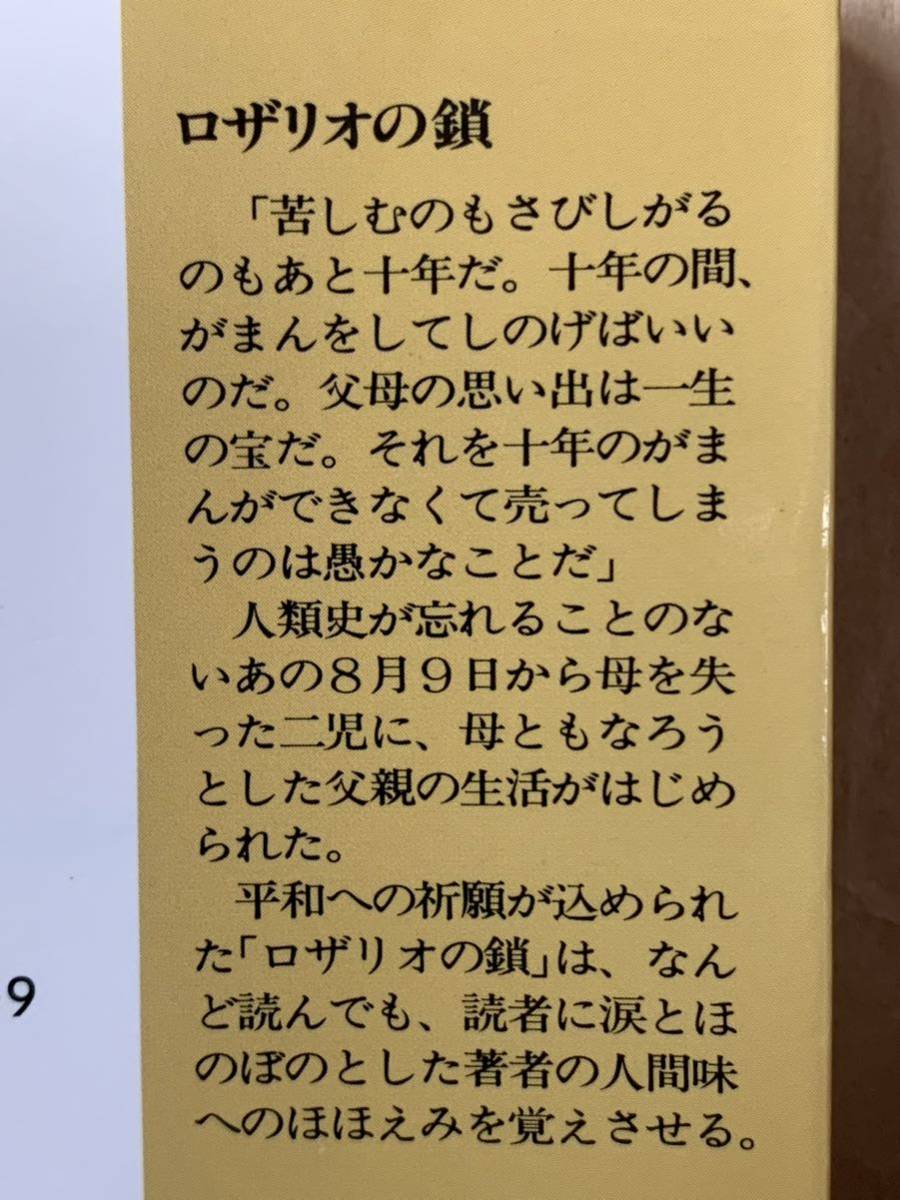 ロザリオの鎖
「苦しむのもさびしがる
のもあと十年だ。十年の間、
がまんをしてしのげばいい
のだ。父母の思い出は一生
の宝だ。それを十年のがま
んができなくて売ってしま
うのは愚かなことだ」
人類史が忘れることのな
いあの8月9日から母を失
った二児に、母ともなろう
とした父親の生活がはじめ
られた。
平和への祈願が込められ
た「ロザリオの鎖」は、なん
ど読んでも、読者に涙とほ
のぼのとした著者の人間味
へのほほえみを覚えさせる。
9